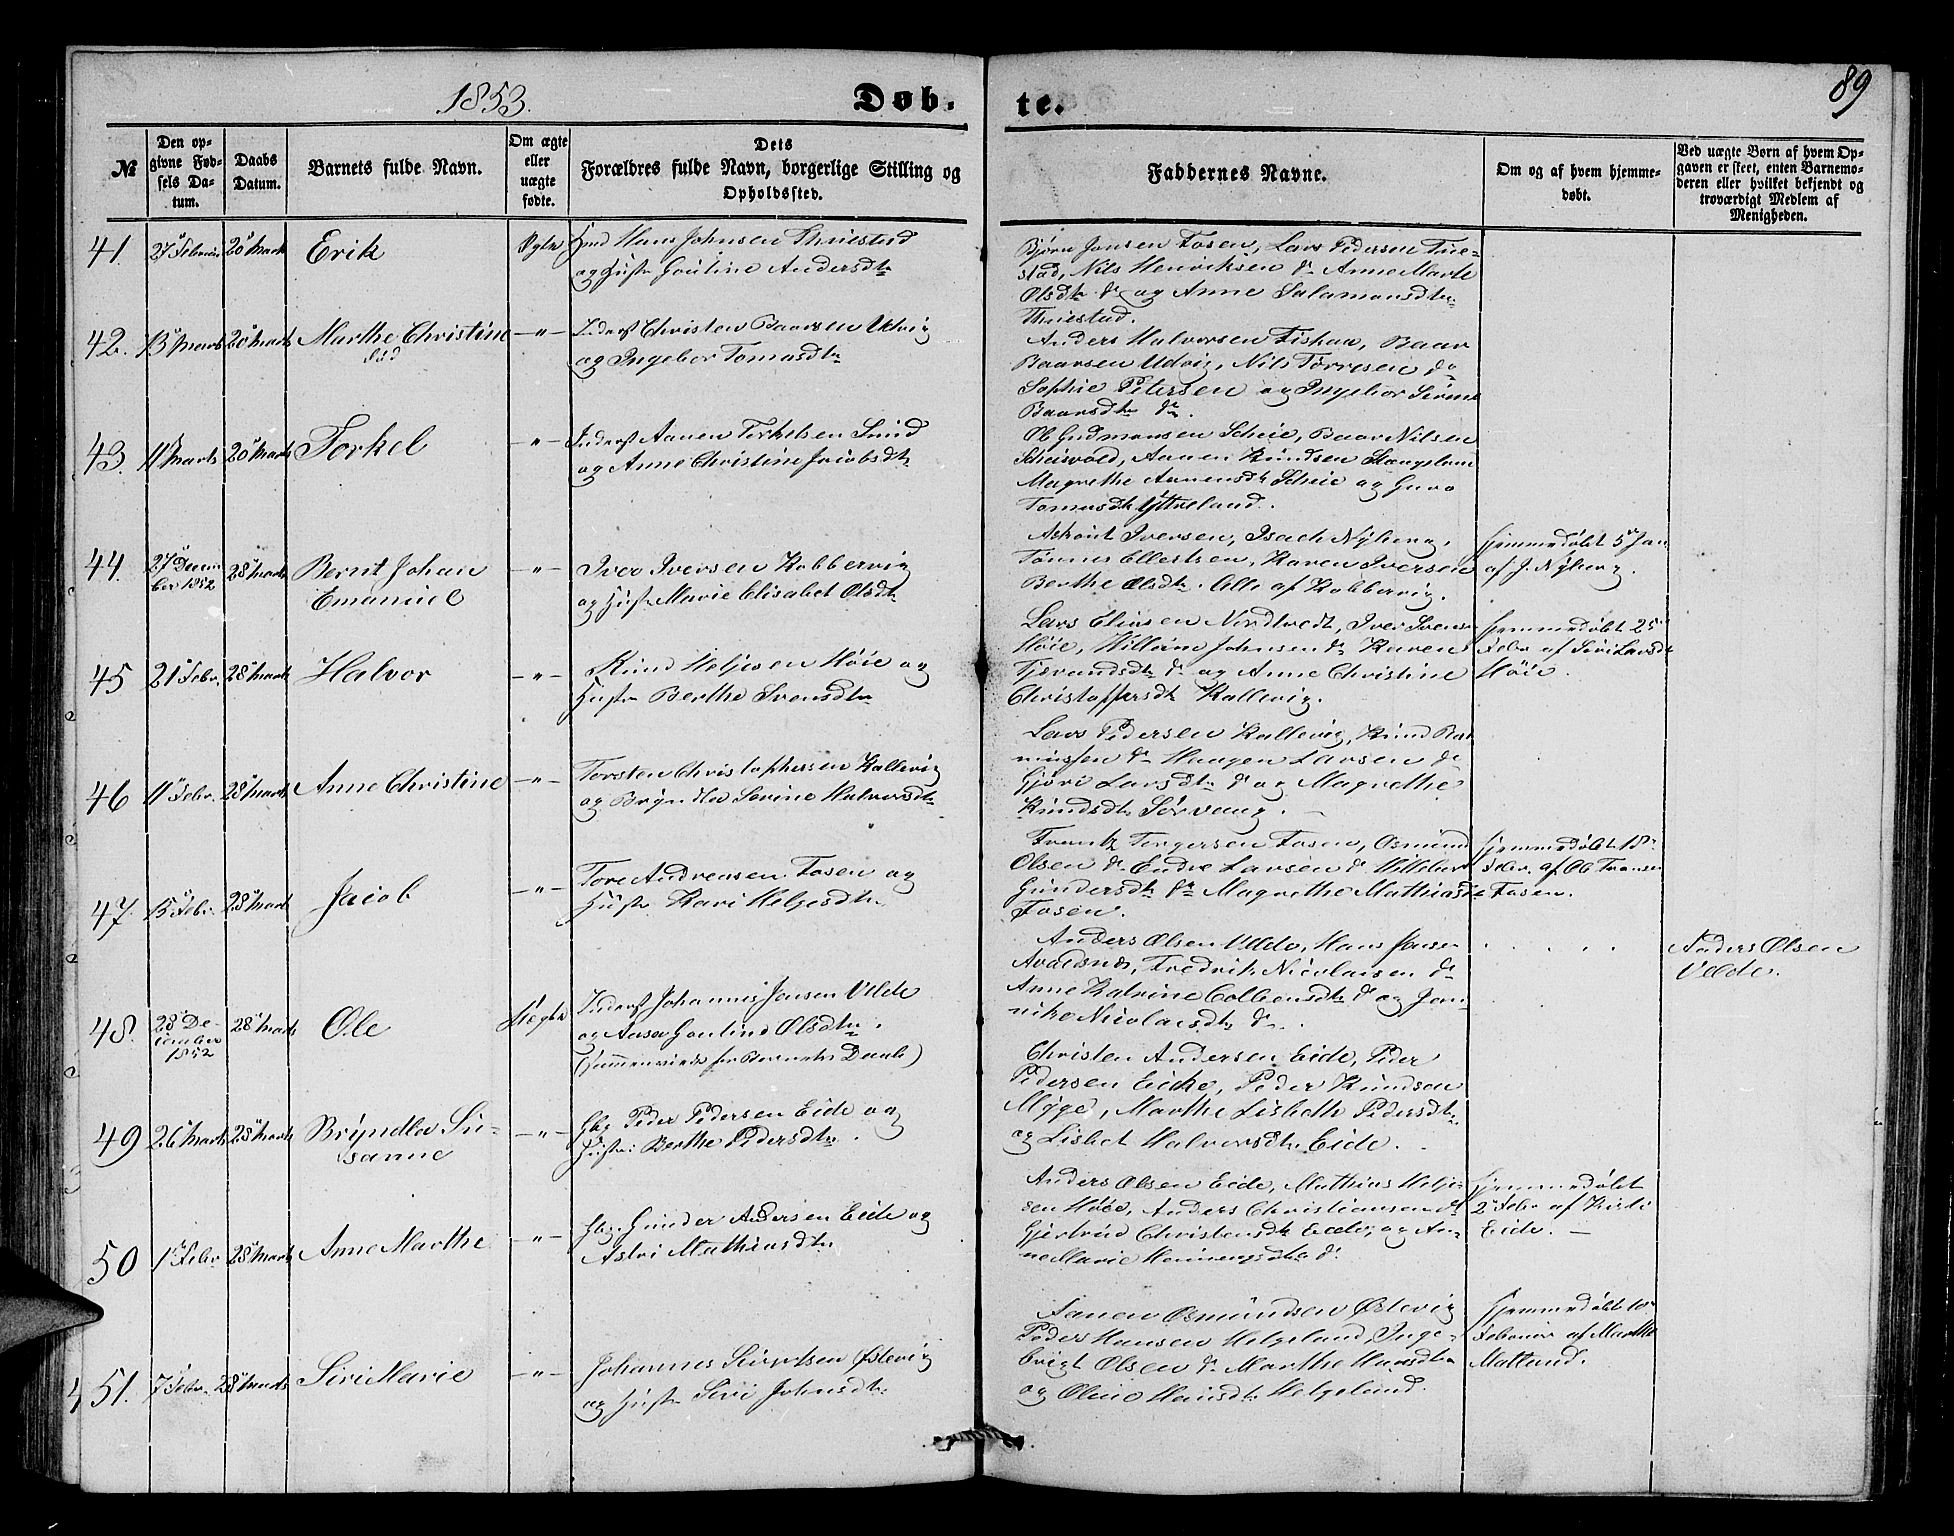 1853.
Døb-
te.
89
№
Den op-
givne Fød-
sels Da-
tum.
Daabs
Datum.
Barnets fulde Navn.
Om ægte
eller
uægte
fødte.
Dets
Forældres fulde Navn, borgerlige Stilling og
Opholdssted.
Faddernes Navne.
Om og af hvem hjemme-
døbt.
Ved uægte Børn af hvem Op-
gaven er skeet, enten Barnemo-
deren eller hvilket bekjendt og
troværdigt Medlem af
Menigheden.
41.
27 Februar
20 Marts
Erik
Ægte
Hans Johnsen
og Hustr Andersdtr
Bjørn Jonsen Fosen, Lars Pedersen Tue-
stad, Nils Henriksen do Anne Marte
Olsdtr do og Anne Salamonsdtr
42.
13 Marts
20 Marts
Marthe Christine
— „ —
Inderst Christen Baarsen Udvig
og Ingebor Tomasdtr
Anders Halvorsen Baar
Baarsen Udvig, Nils Tørresen do
Sophie Petersen og Ingebor Serine
Baarsdtr do.
43.
11 Marts
20 Marts
Torkel
— „ —
Inderst Aanen Torkelsen
og Anne Christine Jacobsdtr
Ole Gudmonsen Scheie, Baar Nilsen
Aanen Knudsen
Magrethe Aanensdtr Scheie og Guro
Tomasdtr Ytreland.
44.
27 Decem-
ber 1852
28 Marts
Bernt Johan
Emanuel
— „ —
Iver Iversen Kobbervig
og Hustr Marie Elisabet Olsdtr
Iversen, Isach Nyberg,
Tønnes Ellertsen, Karen Iversen
Berthe Olsdtr. Alle af Kobbervig.
Hjemmedøbt 5 Jan
af J. Nyberg.
45
21 Febr.
28 Marts
Halvor
— „ —
Knud Heljesen Høie og
Hustr Berthe Svensdtr
Lars Eliasen Nordtvedt, Iver Svens
Høie, Willom Johnsen do Karen
Tjerandsdtr do og Anne Christine
Christoffersdtr Kallevig.
Hjemmedøbt 25
Febr af Siri Larsdt
Høie.
46
11 Febr.
28 Marts
Anne Christine
— „ —
Torsten Christophersen Kallevig
og Bryndlea Serine Halvorsdtr
Lars Pedersen Kallevig, Knud Ras-
mussen do Haagen Larsen do
Gjøri Larsdtr do og Magrethe
Knudsdtr Sørvaag. —
47.
15 Febr.
28 Marts
Jacob
— „ —
Tore Andreasen Fosen og
Hustr Kari Helgesdtr.
Frantz Torgersen Fosen, Osmund
Olsen do Endre Larsen do
Gundersdtr do Magrethe Mathiasdt
Fosen.
Hjemmedøbt 18
Febr. af Ole Fransen
Fosen.
48.
28 De-
cember
1852
28 Marts
Ole
Uægte
Inderst Johannis Jansen Velde
og Aasa Goutine Olsdtr.
(Sammenviede før Barnets Daab)
Anders Olsen Velde, Hans Jansen
Avaldsnæs, Fredrik Nicolaisen do
Anne Katrine do og Jan-
nike Nicolaisdtr do.
Anders Olsen
Velde.
49
26 Marts
28 Marts
Bryndlea Su-
sanne
— „ —
Gbr Peder Pedersen Eide og
Hustr: Berthe Pedersdtr.
Christen Andersen Eide, Peder
Pedersen Eicke, Peder Knudsen
Møge, Marthe Lisbeth Pedersdtr
og Lisbet Halvorsdtr Eide.
50
1 Febr
28 Marts
Anne Marthe
— „ —
Gbr. Gunder Andersen Eide og
Astri Mathiasdtr
Anders Olsen Eide, Mathias Helje-
sen Høie, Anders Christiansen do
Gjertrud Christensdtr Eide, og An-
ne Marie Henningsdtr do
Hjemmedøbt
2 Febr af Kirsti
Eide. —
51.
7 Febr.
28 Marts
Siri Marie
— „ —
Johannes Sivertsen Østevig
og Hustr Siri Johnsdtr
Aanen Osmundsen Østevig
Peder Hansen Helgeland, Inge-
brigt Olsen do Marthe Hansdtr
og Oline Hansdtr Helgeland.
Hjemmedøbt 10
Februar af Marthe
Matland.